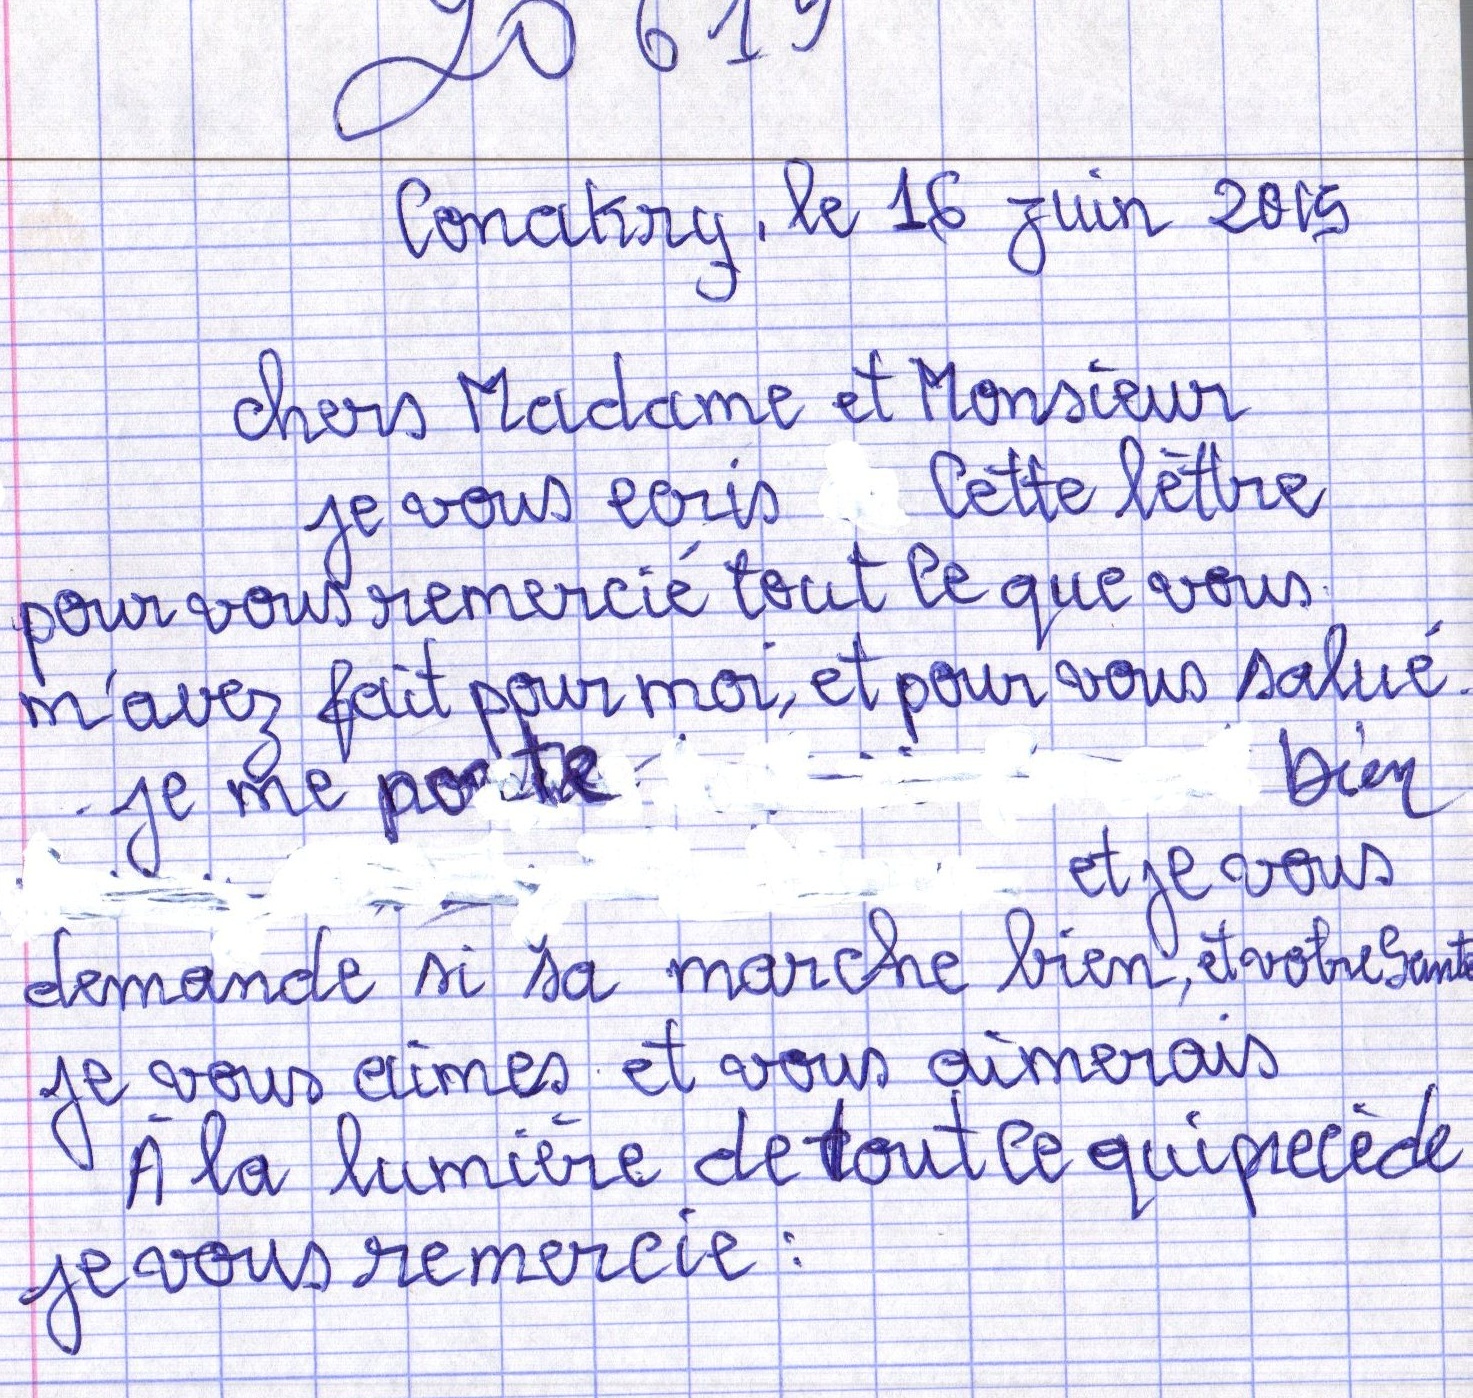 619
Conakry, le 16 juin 2015
chers Madame et Monsieur
je vous ecris Cette lèttre
pour vous remercié tout Ce que vous
m'avez fait pour moi, et pour vous salué.
je me porte bien
et je vous
demande si sa marche bien, et votre Santé
je vous aimes et vous aimerais
À la lumière de tout Ce qui precède
je vous remercie :